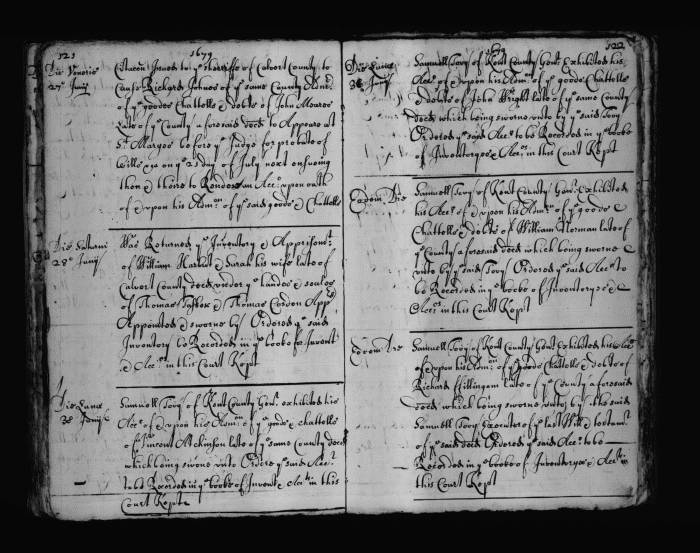 121
1679
Die Veneris
27° Junij
Citacon Issued to ye sherriffe of Calvert County to
Cause Richard Johnes of ye same County Admr
of ye goods Chattells & debts of John Monroe
late of ye County aforesaid decd to Appeare att
St Maryes before ye Judge for probate of
Wills &c on ye 23 day of July next ensueing
then & there to Render an Acct upon oath
of & upon his Admon of ye said goods & Chattells
Die Saturni
28° Junij
Was Returned ye Inventory & Apprisemt
of William & Sarah his wife late of
Calvert County decd under ye hands & seales
of Thomas & Thomas Cosden Apprs
Appointed & sworne by Ordered ye said
Inventory be Recorded in ye booke for Invent
& Accts in this Court Kept
Die Lunæ
30 Junij
Samuell Tovy of Kent County Gent exhibited his
Acct of & upon his Admon of ye goods & chattells
of Vincent Atchinson late of ye same County decd
which being sworne unto Ordered ye said Acct
to be Recorded in ye booke of Invent & Accts in this
Court Kept
122
1679
Die Lunæ
30 Junij
Samuell Tovy of Kent County Gent Exhibited his
Acct of & upon his Admon of ye goods Chattells
& debts of John Wright late of ye same County
decd which being sworne unto by ye said Tovy
Ordered ye said Acct to be Recorded in ye booke
of Inventoryes & Accts in this Court Kept
Eodem Die
Samuell Tovy of Kent County Gent Exhibited
his Acct of & upon his Admon of ye goods
Chattells & debts of William Norman late of
ye County aforesaid decd which being sworne
unto by ye said Tovy Ordered ye said Acct to
be Recorded in ye booke of Inventoryes &
Accts in this Court Kept
Eodem Die
Samuell Tovy of Kent County Gent Exhibited his Acct
of & upon his Admon of ye goods Chattells & debts of
Richard ffillingam late of ye County aforesaid
decd which being sworne unto by the said
Samuell Tovy Executor of ye last Will & testamt
of ye said decd Ordered ye said Acct to be
Recorded in ye booke of Inventoryes & Accts in
this Court Kept